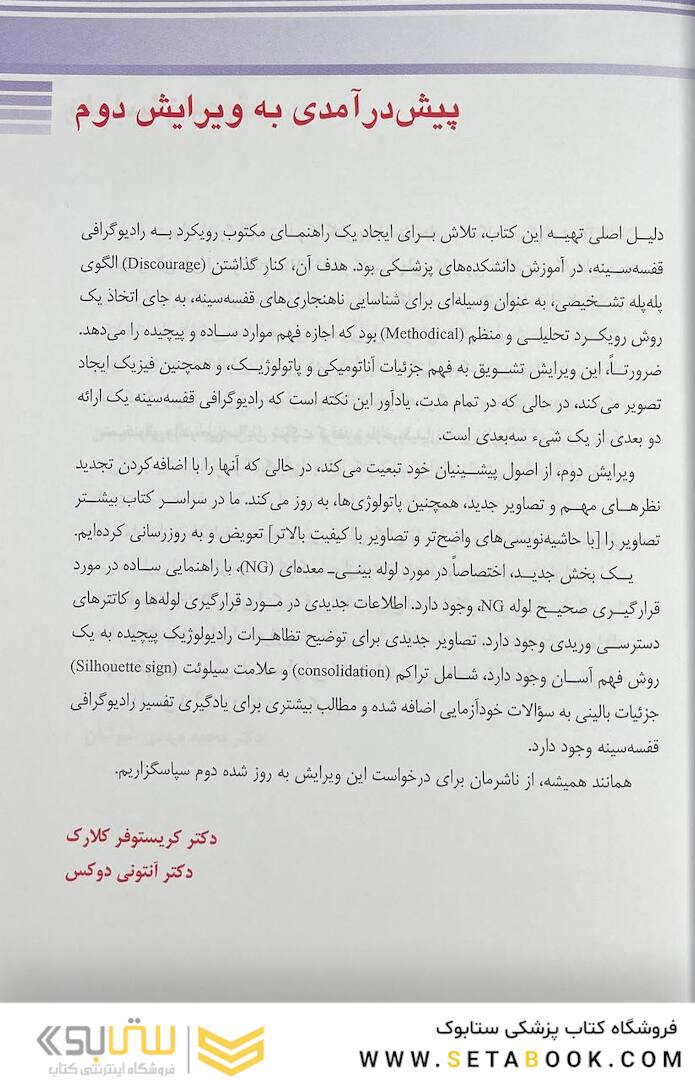 پیش‌درآمدی به ویرایش دوم
دلیل اصلی تهیه این کتاب، تلاش برای ایجاد یک راهنمای مکتوب رویکرد به رادیوگرافی
قفسه‌سینه، در آموزش دانشکده‌های پزشکی بود. هدف آن، کنار گذاشتن (Discourage) الگوی
پله‌پله تشخیصی، به عنوان وسیله‌ای برای شناسایی ناهنجاری‌های قفسه‌سینه، به جای اتخاذ یک
روش رویکرد تحلیلی و منظم (Methodical) بود که اجازه فهم موارد ساده و پیچیده را می‌دهد.
ضرورتاً، این ویرایش تشویق به فهم جزئیات آناتومیکی و پاتولوژیک، و همچنین فیزیک ایجاد
تصویر می‌کند، در حالی که در تمام مدت، یادآور این نکته است که رادیوگرافی قفسه‌سینه یک ارائه
دو بعدی از یک شیء سه‌بعدی است.
ویرایش دوم، از اصول پیشینیان خود تبعیت می‌کند، در حالی که آنها را با اضافه‌کردن تجدید
نظرهای مهم و تصاویر جدید، همچنین پاتولوژی‌ها، به روز می‌کند. ما در سراسر کتاب بیشتر
تصاویر را [با حاشیه‌نویسی‌های واضح‌تر و تصاویر با کیفیت بالاتر] تعویض و به روزرسانی کرده‌ایم.
یک بخش جدید، اختصاصاً در مورد لوله بینی‌ـ معده‌ای (NG)، با راهنمایی ساده در مورد
قرارگیری صحیح لوله NG، وجود دارد. اطلاعات جدیدی در مورد قرارگیری لوله‌ها و کاتترهای
دسترسی وریدی وجود دارد. تصاویر جدیدی برای توضیح تظاهرات رادیولوژیک پیچیده به یک
روش فهم آسان وجود دارد، شامل تراکم (consolidation) و علامت سیلوئت (Silhouette sign)
جزئیات بالینی به سؤالات خودآزمایی اضافه شده و مطالب بیشتری برای یادگیری تفسیر رادیوگرافی
قفسه‌سینه وجود دارد.
همانند همیشه، از ناشرمان برای درخواست این ویرایش به روز شده دوم سپاسگزاریم.
دکتر کریستوفر کلارک
دکتر آنتونی دوکس
فروشگاه کتاب پزشکی ستابوک
WWW.SETABOOK.COM
ستابوک
فروشگاه اینترنتی کتاب